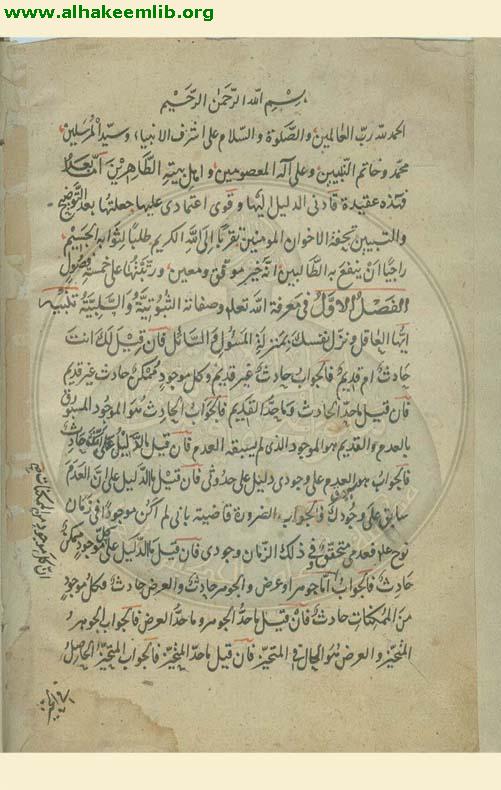 www.alhakeemlib.org
بسم الله الرحمن الرحيم
الحمد لله رب العالمين والصلوة والسلام على اشرف الانبياء وسيد المرسلين
محمد وخاتم النبيين وعلى آله المعصومين واهل بيته الطاهرين اما بعد
فهذه عقيدة قادني الدليل اليها وقوى اعتمادي عليها جعلتها بعد التوضيح
والتبيين تحفة الاخوان المومنين تقربا الى الله الكريم طلبا لثوابه الجسيم
راجيا ان ينفع به الطالبين انه خير موفق ومعين ورتبتها على خمسة فصول
الفصل الاول في معرفة الله تعالى وصفاته الثبوتية والسلبية تنبيه
ايها العاقل ونزل نفسك بمنزلة المسئول والسائل فان قيل لك انت
حادث ام قديم فالجواب حادث غير قديم وكل موجود ممكن حادث غير قديم
فان قيل ما حد الحادث وما حد القديم فالجواب الحادث هو الموجود المسبوق
بالعدم والقديم هو الموجود الذي لم يسبقه العدم فان قيل ما الدليل على انك حادث
فالجواب هو العدم على وجودي دليل على حدوثي فان قيل ما الدليل على ان العدم
سابق على وجودك فالجواب الضرورة قاضية باني لم اكن موجودا في زمان
نوح على فعدمي متحقق في ذلك الزمان وجودي فان قيل ما الدليل على كل موجود ممكن
حادث فالجواب اما جوهر او عرض والجوهر حادث والعرض حادث فكل موجود
من الممكنات حادث فان قيل ما حد الجوهر وما حد العرض فالجواب الجوهر هو
المتحيز والعرض هو الحال في المتحيز فان قيل ما حد المتحيز فالجواب المتحيز الحاصل
في الحيز
ان كل موجود من الممكنات